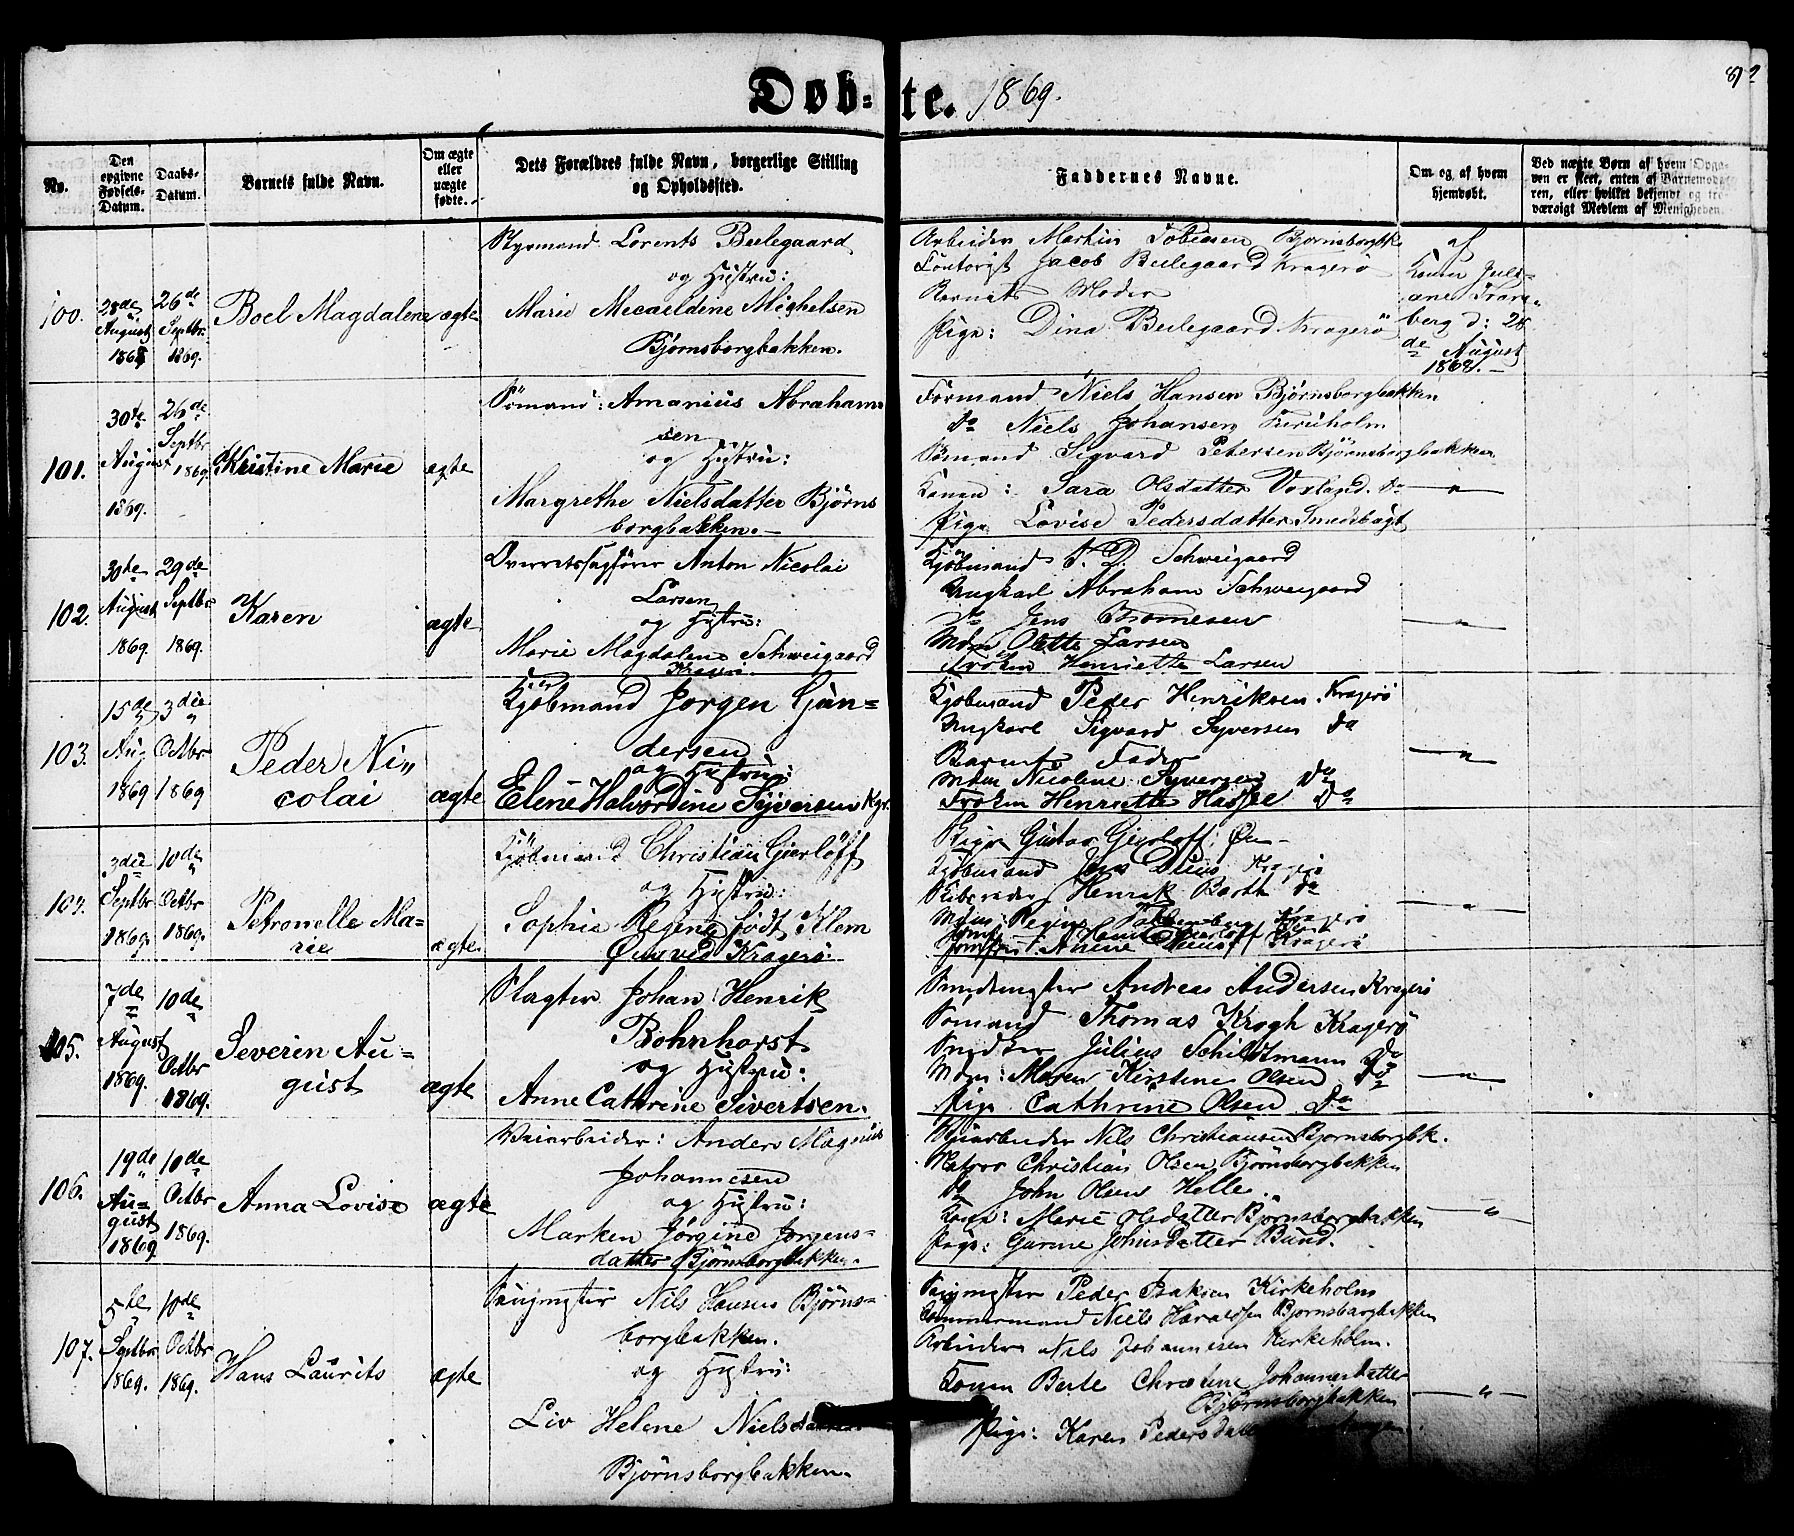 Døb-te. 1869.
No.
Den opgivne Fødsels-Datum.
Daabs-Datum.
Barnets fulde Navn.
Om ægte eller uægte fødte.
Dets Forældres fulde Navn, borgerlige Stilling og Opholdssted.
Faddernes Navne.
Om og af hvem hjemdøbt.
Ved uægte Børn af hvem Opgaven er skeet, enten af Barnemoderen, eller hvilket bekjendt og troværdigt Medlem af Menigheden.
100.
28de August
26de Septbr. 1869.
Boel Magdalene
ægte
Styrmand Lorents Beilegaard
og Hustru:
Marie Micaeldine Michelsen
Bjørnsborgbakken.
Arbeider Martin Tobiesen
Contorist Jacob Beilegaard Kragerø
Barnets Moder
Pige: Dina Beilegaard Kragerø
af
Konen Juli-
ane
berg d: 28
de August
101.
30te August 1869.
26de Septbr 1869
Kristine Marie
ægte
Sömand: Amanius Abraham-
sen
og Hustru:
Margrethe Nielsdatter Björns
borgbakken.
Formand Niels Hansen Bjørnsborgbakken
do Niels Johansen Furuholm
Sömand Sigvard Petersen Björnsborgbakken
Konen: Sara Olsdatter do
Pige Lovise Pedersdatter Smedsbugt
102.
30te August 1869.
29de Septbr 1869.
Karen
ægte
Overretssagfører Anton Nicolai
Larsen
og Hustru:
Marie Magdalene Schweigaard
Kragerø.
Kjøbmand J. D. Schweigaard
Ungkarl Abraham Schweigaard
do Jens Thomesen
Mdm Olette Larsen
Frøken Henriette Larsen
103.
15de Aug 1869
3die Octbr 1869
Peder Ni-
colai
ægte
Kjøbmand Jørgen Gun-
dersen
og Hustru:
Elene Halvordine Syversen Kgr.
Kjøbmand Peder Henriksen. Kragerö
Ungkarl Sigvard Syversen do
Barnets Fader
Mdm Nicoline Syversen Do
Frøken Henriette Do
104.
3die Septbr 1869.
10de Octbr 1869.
Petronelle Ma-
rie
ægte
Kjöbmand Christian Gierløff
og Hustru:
Sophie Regine født Klem
Øen ved Kragerø.
Gustav Gierløff. Øen
Kjøbmand Jens Kragerø
Henrik Barth do
Mdm: Regine Kragerø
Kragerø
105.
7de August 1869.
10de Octbr 1869.
Severin Au-
gust
ægte
Slagter Johan Henrik
Bohnhorst
og Hustru:
Anne Cathrine Sivertsen.
Smedmester Andreas Andersen Kragerö
Sömand Thomas Krogh Kragerö
Snedker Julius Schildtmann Do
Mdm: Maren Kirstine Olsen Do
Pige Cathrine Olsen Do
106.
19de August 1869
10de Octbr 1869.
Anna Lovise
ægte
Veiarbeider: Anders Magnus
Johannesen
og Hustru:
Marken Jørgine Jørgens-
datter Bjørnsborgbakken.
Veiarbeider Nils Christiansen Bjornsborgbk.
Matros Christian Olsen Bjørnsborgbakken
do John Olsen Helle.
Kone: Marie Olsdatter Bjørnsborgbakken
Pige: Gurine Johnsdatter Bund.
107.
5te Septbr 1869.
10de Octbr 1869.
Hans Laurits
ægte
Nils Hansen Björns-
borgbakken.
og Hustru:
Liv Helene Nielsdatter
Bjørnsborgbakken.
Peder Isaksen Kirkeholm
Tømmermand Niels Haraldsen Bjornsborgbakken
Arbeider Nils Johannesen Kirkeholm.
Konen Berte Christine Johannesdatter
Bjørnsborgbakken
Pige: Karen Pedersdatter